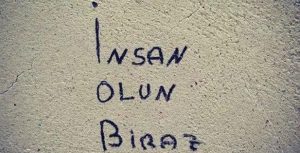 İNSAN
OLUN
BİRAZ